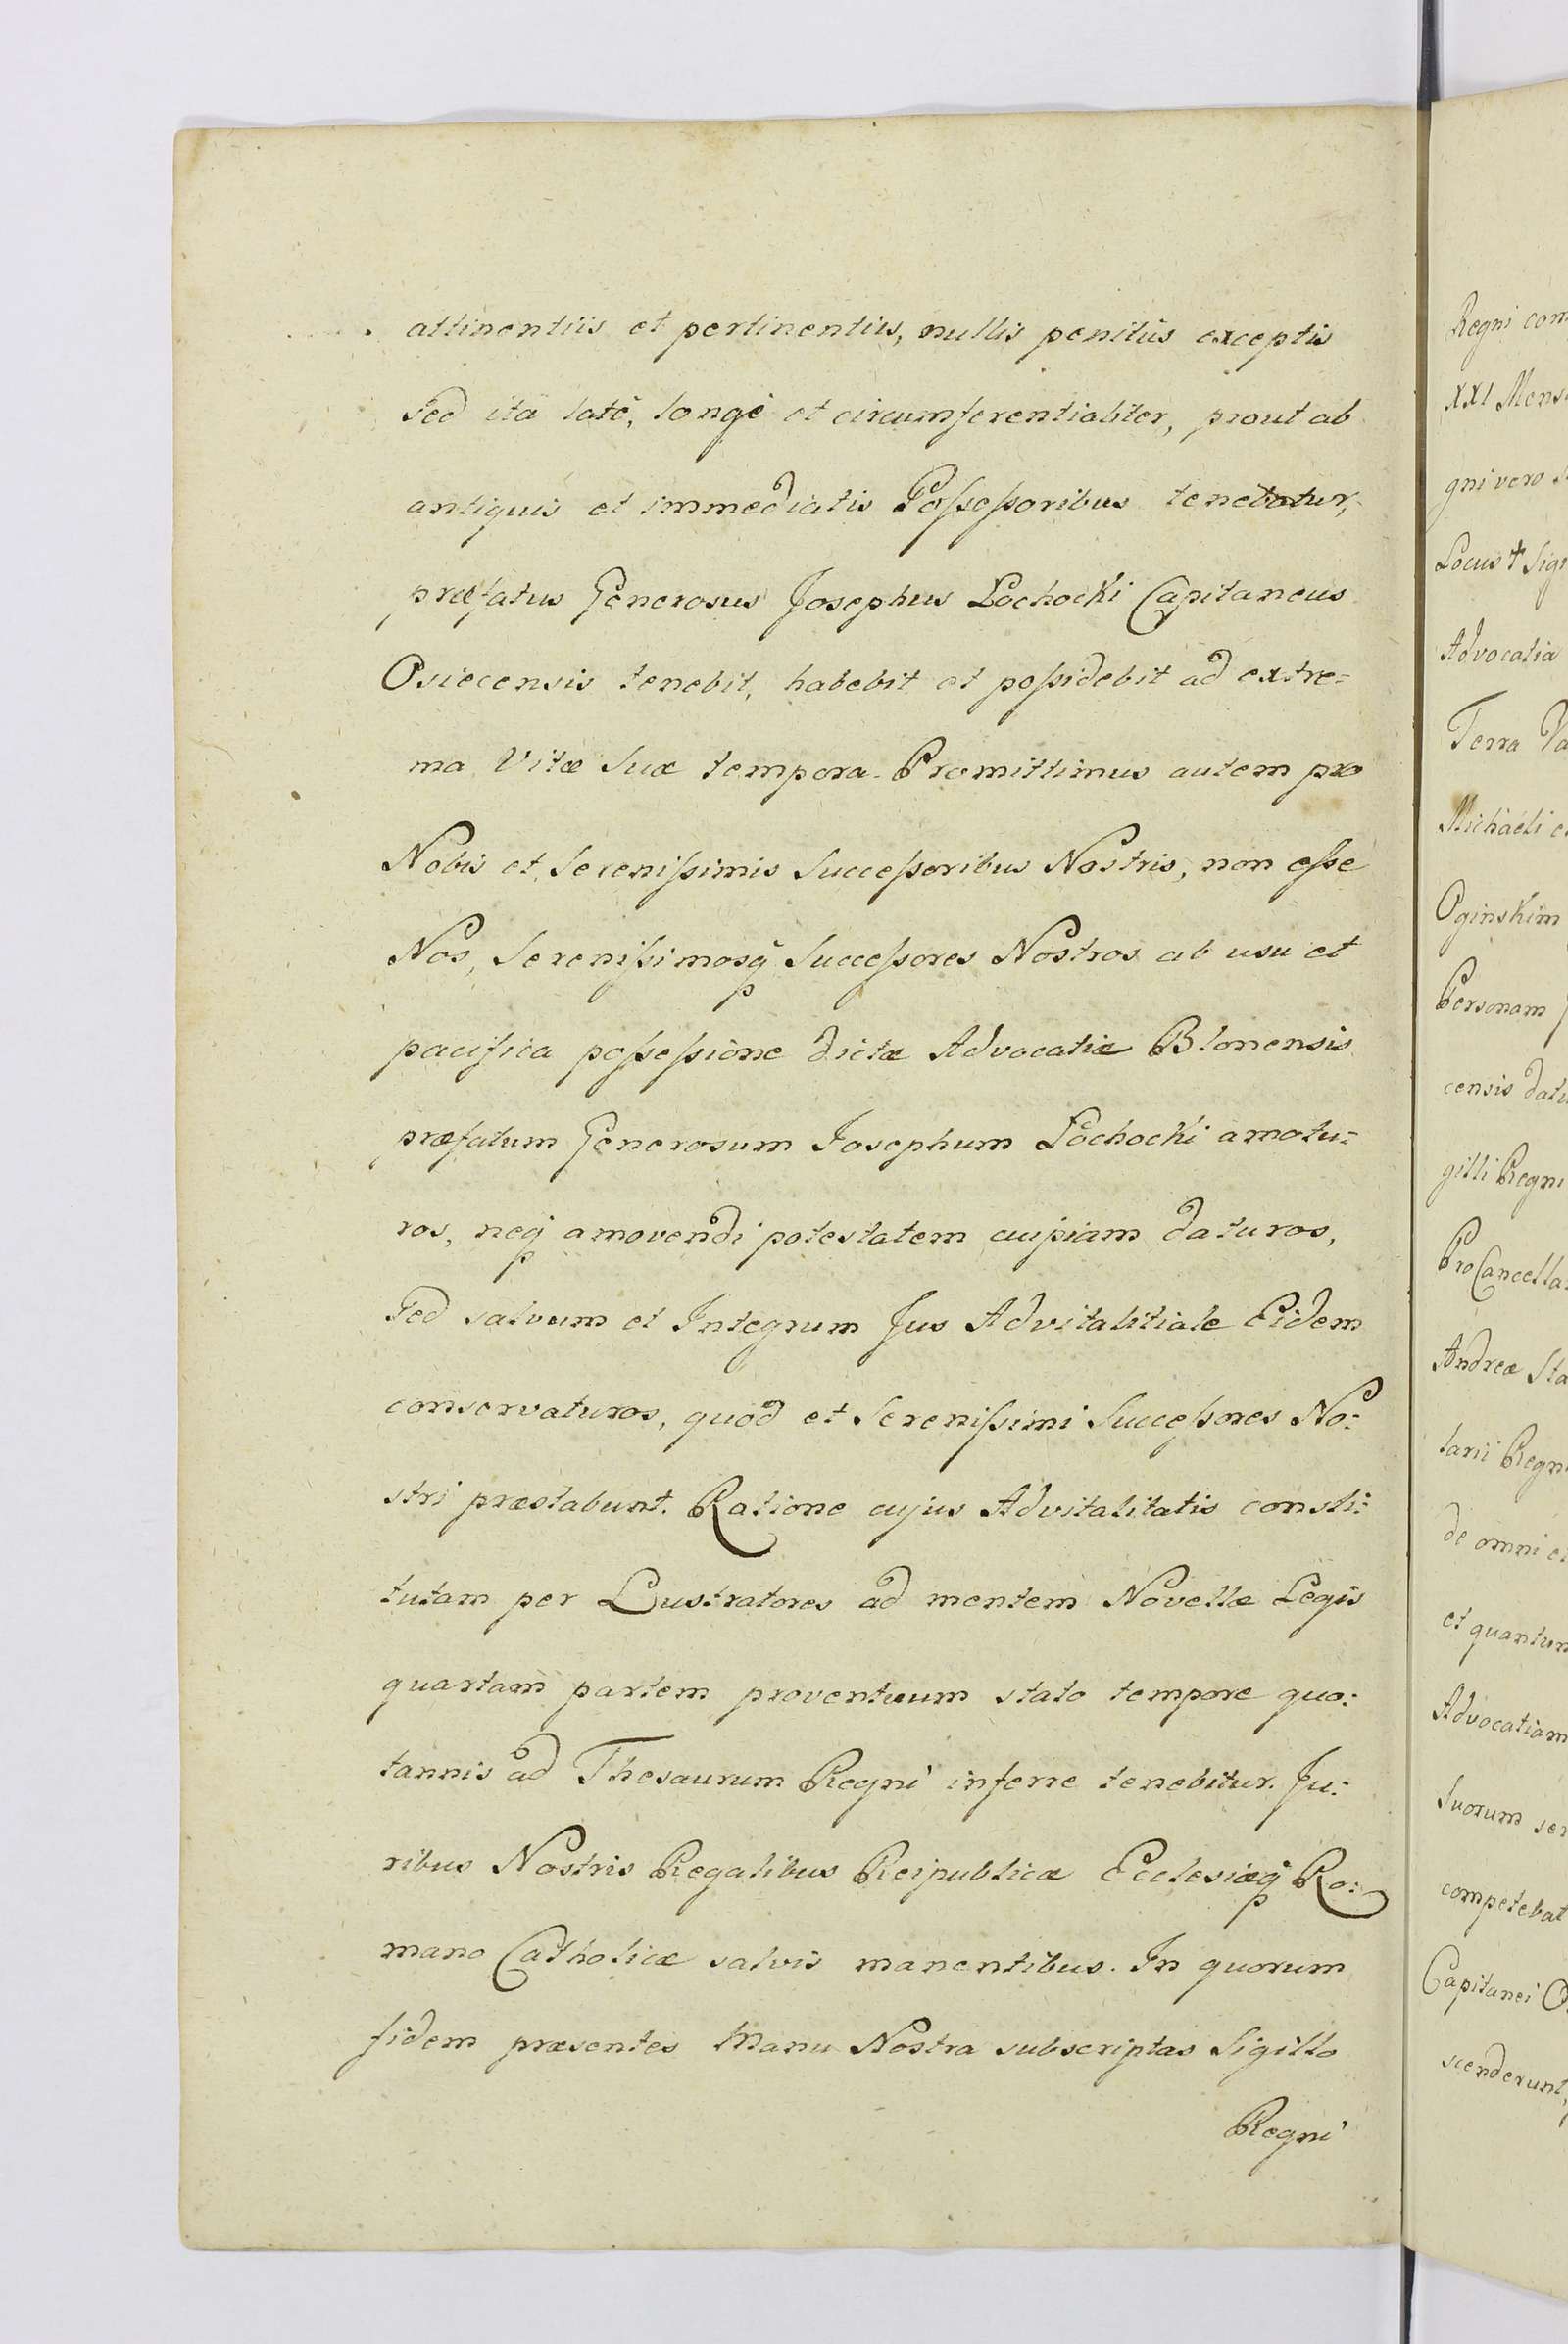 attinentiis et pertinentiis, nullis penitùs exceptis
sed ita latè, longè et circumferentialiter, prout ab
antiquis et immediatis Possessoribus tenebatur,
præfatus Generosus Josephus Łochocki Capitaneus
Osiecensis tenebit, habebit et possidebit ad extre=
ma Vitæ Suæ tempora. Promittimus autem pro
Nobis et Serenissimis Successoribus Nostris, non esse
Nos, Serenissimosq Successores Nostros ab usu et
pacifica possessione dictæ Advocatiæ Blonensis
præfatum Generosum Josephum Łochocki amotu=
ros, neq amovendi potestatem cuipiam daturos,
Sed salvum et Integrum Jus Advitalitiale Eidem
conservaturos, quod et Serenissimi Successores No=
stri præstabunt. Ratione cujus Advitalitatis consti=
tutam per Lustratores ad mentem Novellæ Legis
quartam partem proventuum stato tempore quo=
tannis ad Thesaurum Regni inferre tenebitur. Ju=
ribus Nostris Regalibus Reipublicæ Ecclesiæq Ro=
mano Catholicæ salvis manentibus. In quorum
fidem præsentes Manu Nostra subscriptas Sigillo
Regni
Regni com
XXI Mens
gni vero s
Locus + Sigi
Advocatia
Terra Va
Michaeli
Oginskim
Personam
censis datu
gilli Regni
ProCancella
Andreæ Sta
tarii Regni
de omni
et quantum
Advocatiam
Suorum ser
competebat
Capitanei O
scenderunt,